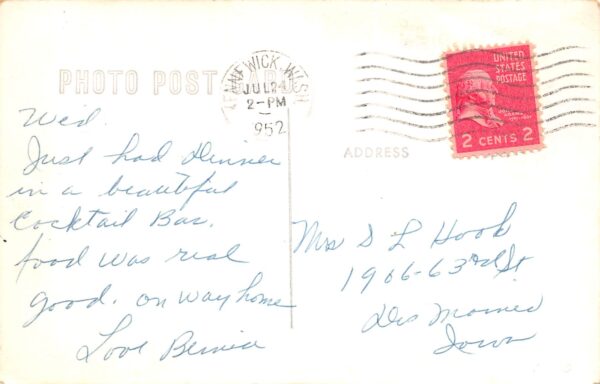 PHOTO POST CARD
KENNEWICK, WASH
JUL 24
2-PM
1952
UNITED
STATES
POSTAGE
2 CENTS 2
ADDRESS
Wed.
Just had Dinner
in a beautiful
Cocktail Bar.
food was real
good. on way home
Love Bernice
Mrs D L Hook
1906-63rd St
Des Moines
Iowa